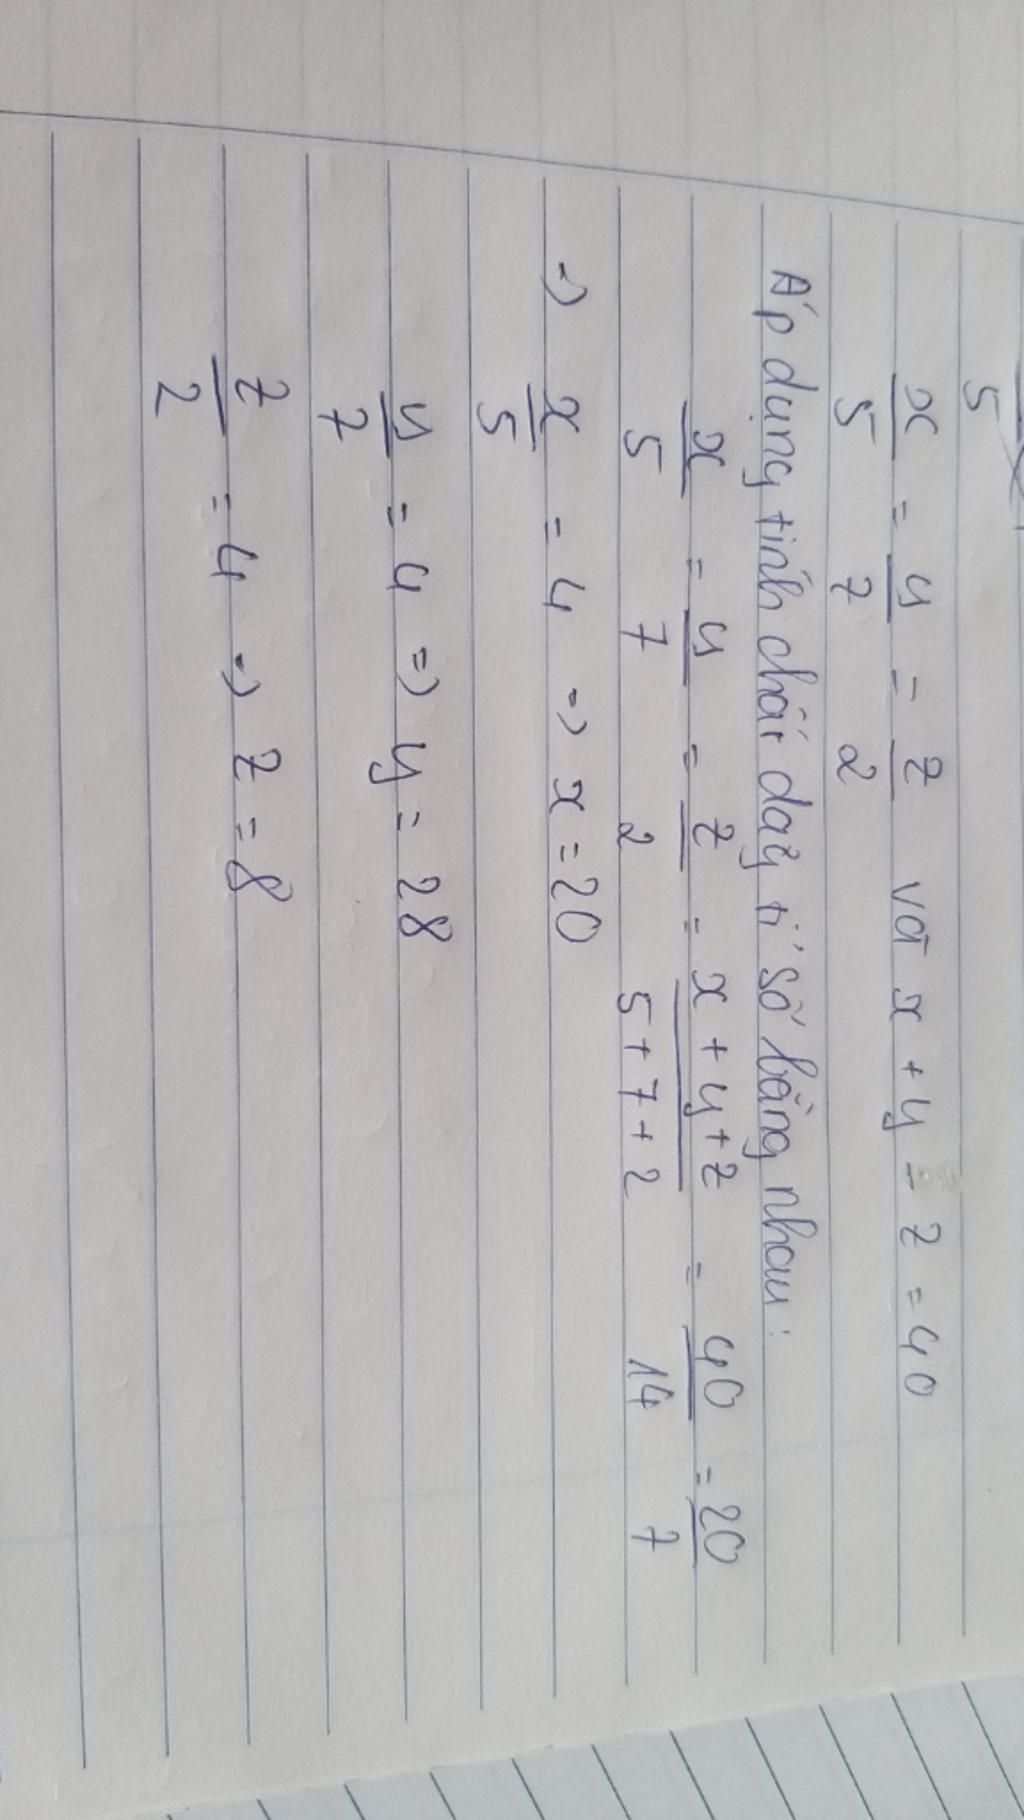 5
x/5 = y/7 = z/2 và x + y - z = 40
Áp dụng tính chất dãy tỉ số bằng nhau:
x/5 = y/7 = z/2 = x + y + z / 5 + 7 + 2 = 40/14 = 20/7
=> x/5 = 4 => x = 20
y/7 = 4 => y = 28
z/2 = 4 => z = 8